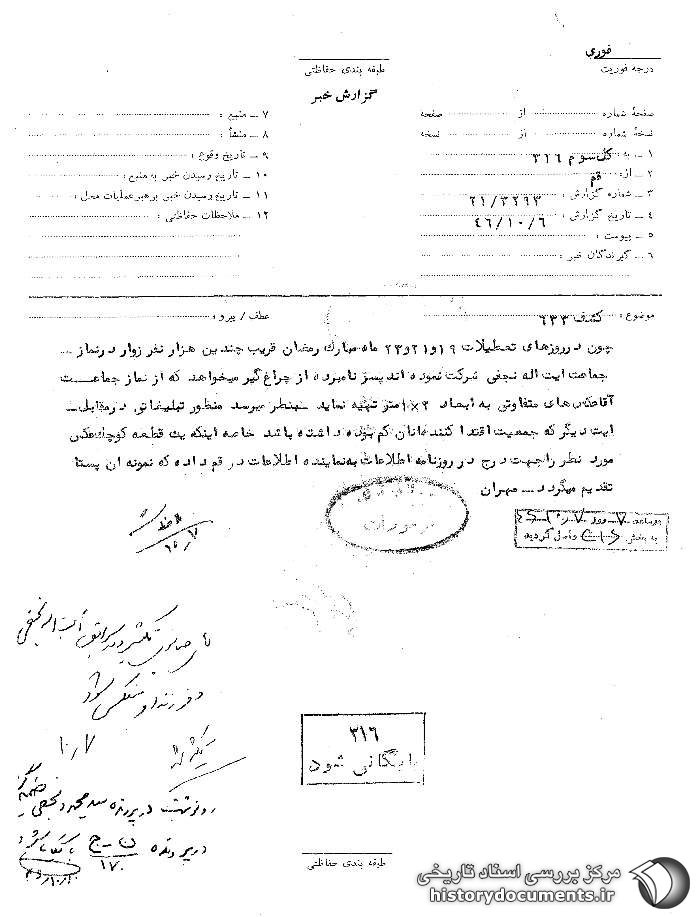 فوري
درجه فوریت
طبقه بندی حفاظتی
گزارش خبر
صفحهٔ شماره از صفحه
نسخهٔ شماره از نسخه
۱ ــ به : کل سوم ۳۱۶
۲ ــ از : قم
۳ ــ شماره گزارش : ۲۱/۳۲۹۳
۴ ــ تاریخ گزارش : ۴۶/۱۰/۶
۵ ــ پیوست :
۶ ــ گیرندگان خبر :
۷ ــ منبع :
۸ ــ منشأ :
۹ ــ تاریخ وقوع :
۱۰ ــ تاریخ رسیدن خبر به منبع :
۱۱ ــ تاریخ رسیدن خبر برهبر عملیات محل :
۱۲ ــ ملاحظات حفاظتی :
موضوع : کشف ۶۳۳
عطف / پیرو :
چون در روزهای تعطیلات ۱۹ و ۲۱ و ۲۳ ماه مبارك رمضان قریب چندین هزار نفر زوار در نماز ــ
جماعت ایت اله نجفی شرکت نموده اند پسر نامبرده از چراغ گیر میخواهد که از نماز جماعت
آقا عکس های متفاوتی به ابعاد ۲×۱ متر تهیه نماید بنظر میرسد منظور تبلیغاتی در مقابل ــ
ایت دیگر که جمعیت اقتدا کننده انان کم بوده داشته باشد خاصه اینکه یك قطعه کوچك عکس
مورد نظر را جهت درج در روزنامه اطلاعات به نماینده اطلاعات در قم داده که نمونه ان پستا
تقدیم میگردد ــ مهران
در ساعت روز
به بخش واصل گردید
۱۰/۷
۳۱۶
بایگانی شود
رونوشت در پرونده سید محمود نجفی ضمیمه
در پرونده ن - ج
۱۷۰
طبقه بندی حفاظتی
مرکز بررسی اسناد تاریخی
historydocuments.ir